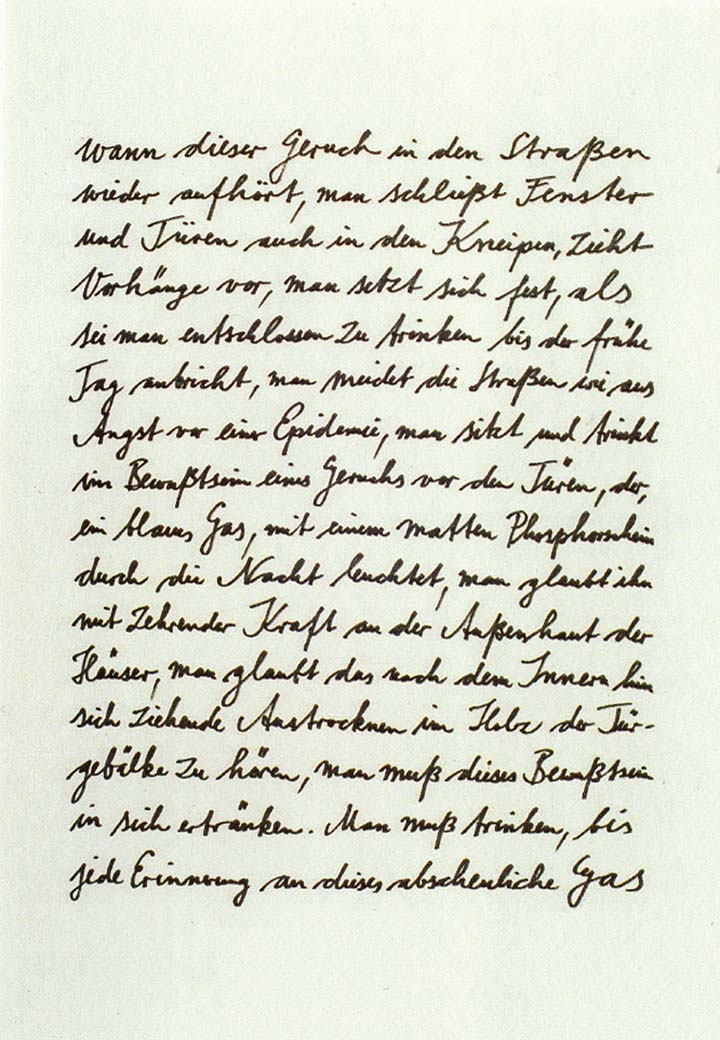 wann dieser Geruch in den Straßen
wieder aufhört, man schließt Fenster
und Türen auch in den Kneipen, zieht
Vorhänge vor, man setzt sich fest, als
sei man entschlossen zu trinken bis der frühe
Tag anbricht, man meidet die Straßen wie aus
Angst vor einer Epidemie, man sitzt und trinkt
im Bewußtsein eines Geruchs vor den Türen, der,
ein blaues Gas, mit einem matten Phosphorschein
durch die Nacht leuchtet, man glaubt ihn
mit zehrender Kraft an der Außenhaut der
Häuser, man glaubt das nach dem Innern hin
sich ziehende Austrocknen im Holz der Tür-
gebälke zu hören, man muß dieses Bewußtsein
in sich ertränken. Man muß trinken, bis
jede Erinnerung an dieses abscheuliche Gas